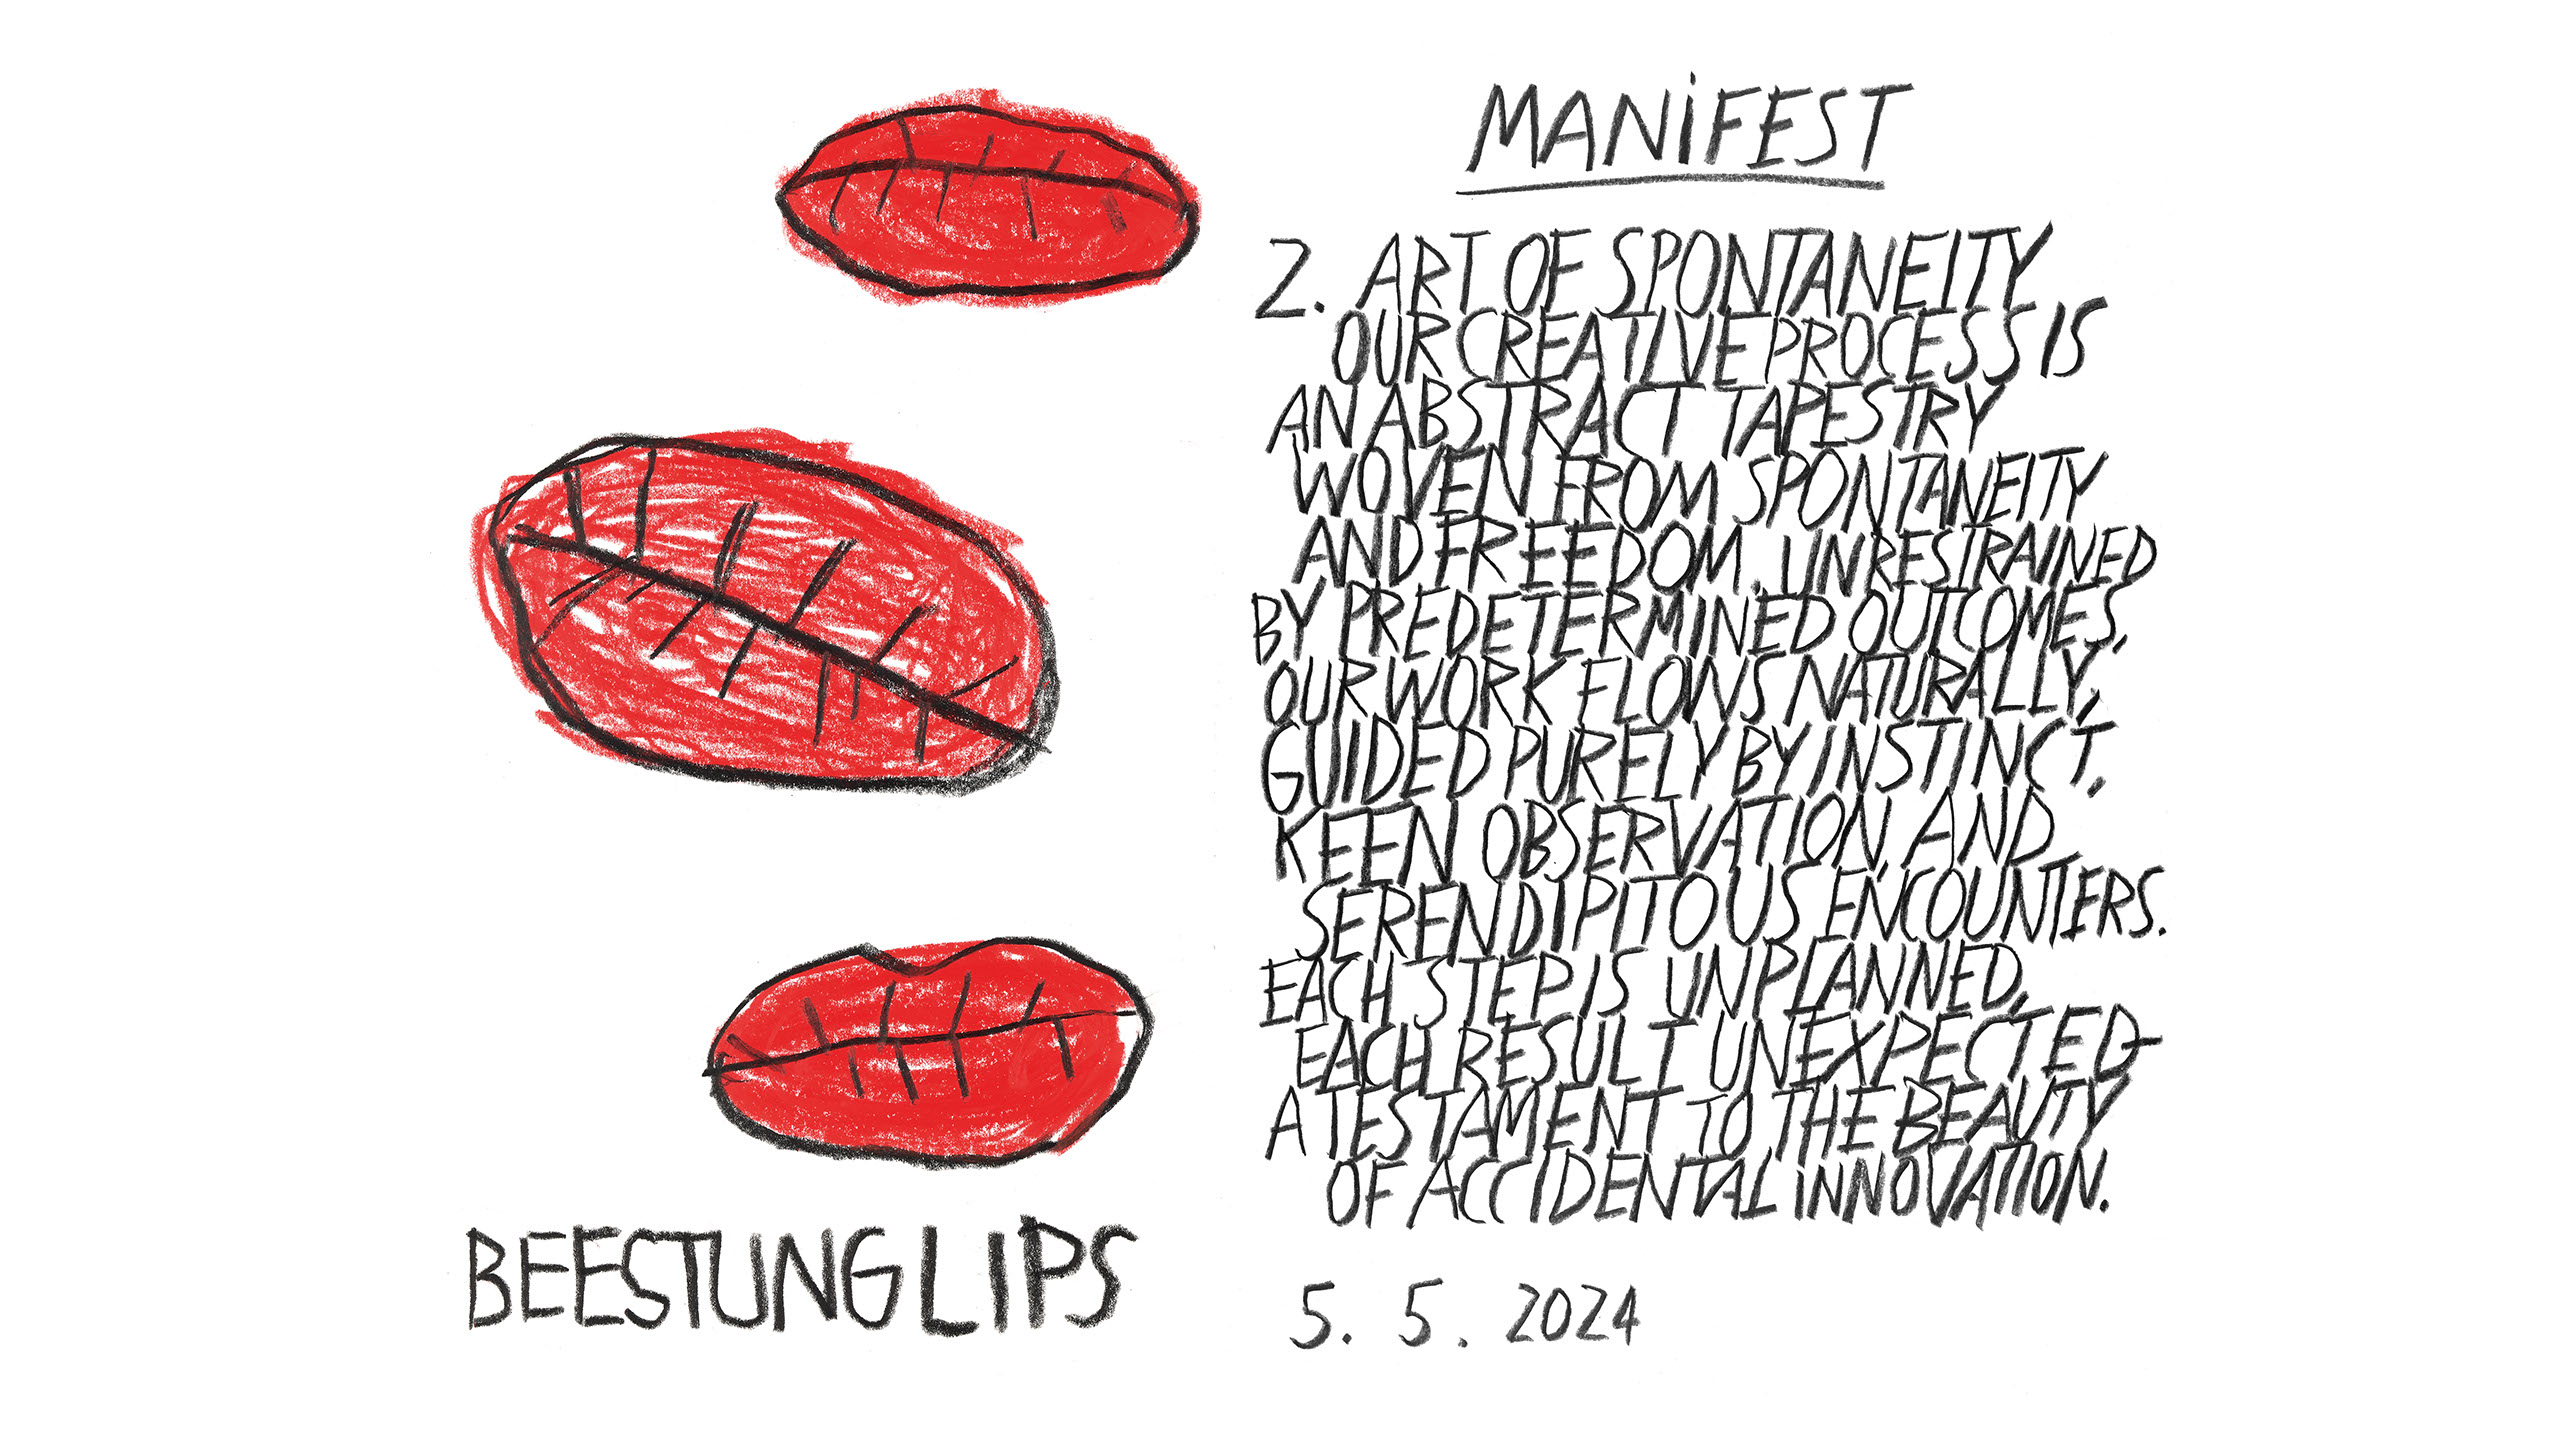 MANiFEST
2. ART OF SPONTANEITY
OUR CREATIVE PROCESS IS
AN ABSTRACT TAPESTRY
WOVEN FROM SPONTANEITY
AND FREEDOM. UNRESTRAINED
BY PREDETERMINED OUTCOMES,
OUR WORK FLOWS NATURALLY,
GUIDED PURELY BY INSTINCT,
KEEN OBSERVATION, AND
SERENDIPITOUS ENCOUNTERS.
EACH STEP IS UNPLANNED,
EACH RESULT UNEXPECTED-
A TESTAMENT TO THE BEAUTY
OF ACCIDENTAL iNNOVATION.
5. 5. 2024
BEESTUNG LIPS